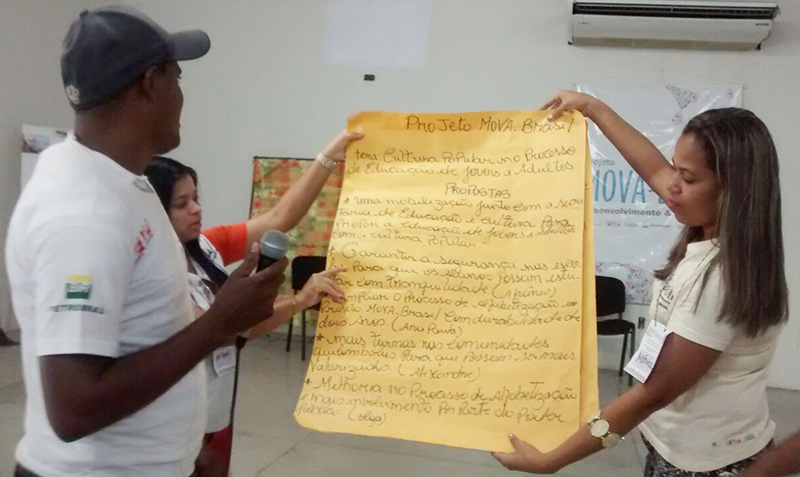 Projeto MOVA-Brasil
tema: Cultura Popular no Processo
de Educação de Jovens e Adultos
PROPOSTAS
* uma mobilização junto com a secre
taria de Educação e cultura Para
a Educação de jovens e adultos
com a cultura Popular.
* Garantir a segurança nas esco
Para que os alunos Possam estu
dar com Tranquilidade (Afrânio)
o Processo de Alfabetização
Projeto MOVA-Brasil Com durabilidade de
dois Anos (Ana Paula)
* mais Turmas nas Comunidades
quilombolas Para que Possam ser mais
Valorizados (Alexandre)
* Melhoria no Processo de Alfabetização
e mais envolvimento Por Parte do Poder
(Olga)
rojeto
MOVA-
esenvolvimento &
BR
PETROBRAS